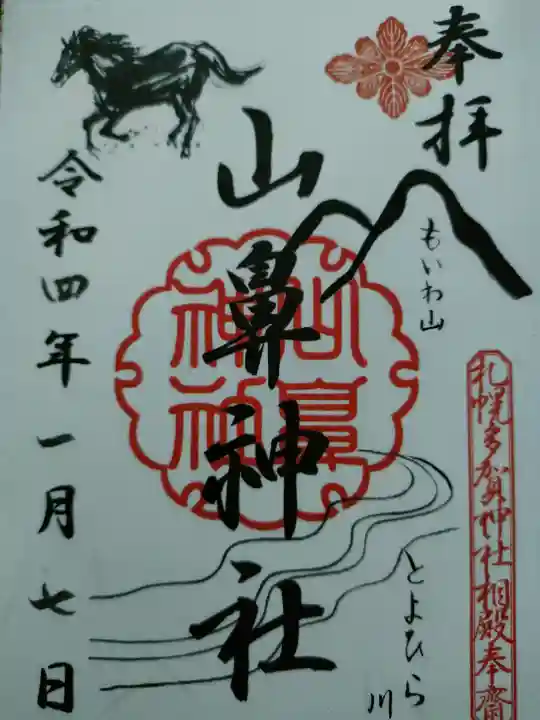 奉拝
もいわ山
札幌多賀神社相殿奉齋
とよひら川
山鼻神社
山鼻神社
令和四年一月七日